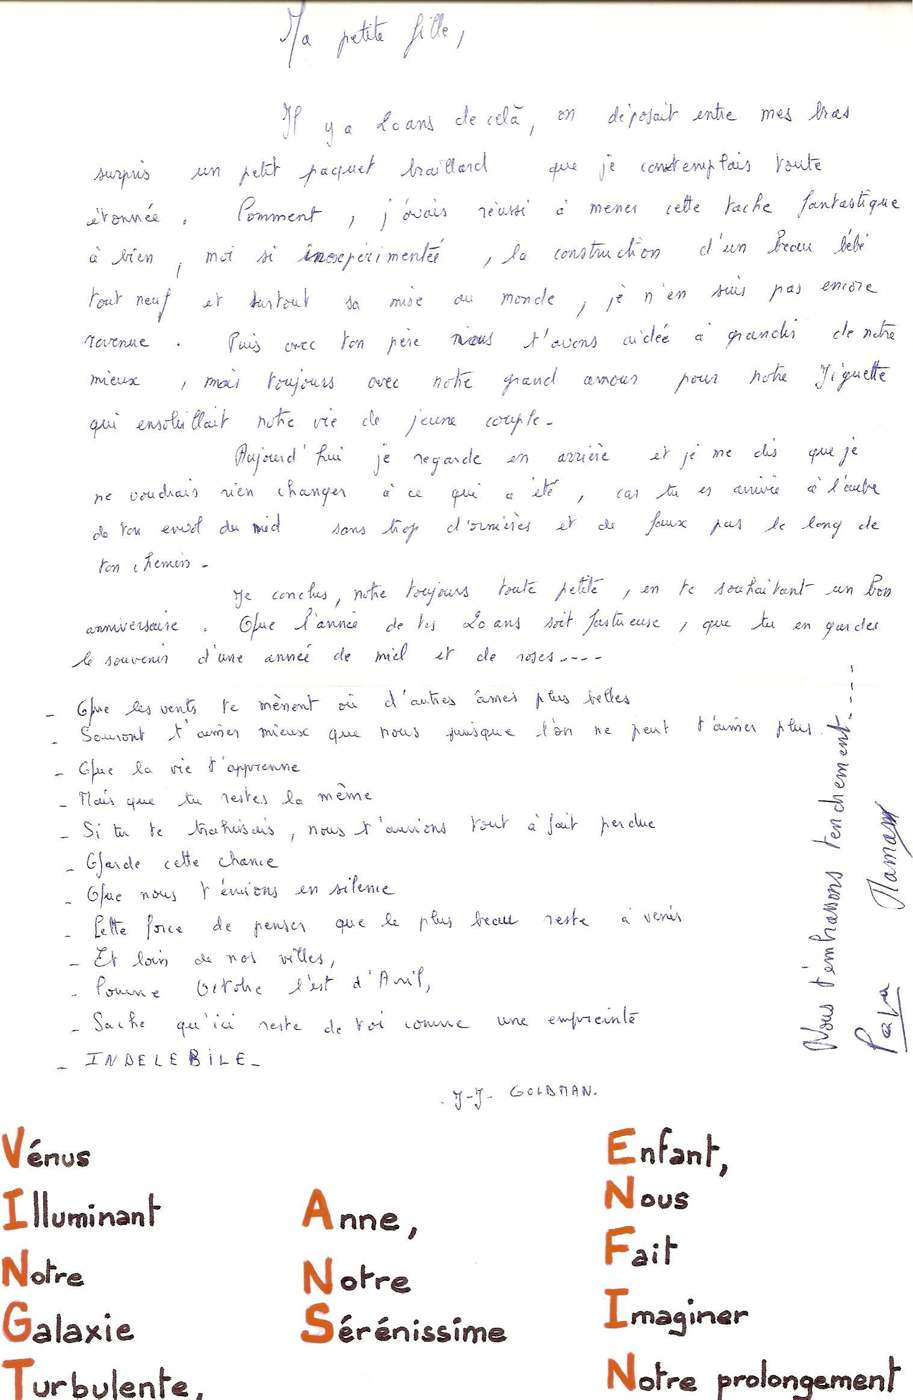 Ma petite fille,
Il y a 20 ans de celà, on déposait entre mes bras
surpris un petit paquet braillard que je contemplais toute
étonnée. Comment, j'avais réussi à mener cette tache fantastique
à bien, moi si inexpérimentée, la construction d'un beau bébé
tout neuf et surtout sa mise au monde, je n'en suis pas encore
revenue. Puis avec ton père nous t'avons aidée à grandir de notre
mieux, mais toujours avec notre grand amour pour notre
qui ensoleillait notre vie de jeune couple.
Aujourd'hui je regarde en arrière et je me dis que je
ne voudrais rien changer à ce qui a été, car tu es arrivée à l'aube
de ton envol du nid sans trop d'ornières et de faux pas le long de
ton chemin.
Je conclus, notre toujours toute petite, en te souhaitant un bon
anniversaire. Que l'année de tes 20 ans soit fastueuse, que tu en gardes
le souvenir d'une année de miel et de roses----
- Que les vents te mènent où d'autres âmes plus belles
- Sauront t'aimer mieux que nous puisque l'on ne peut t'aimer plus.
- Que la vie t'apprenne
- Mais que tu restes la même
- Si tu te trahissais, nous t'aurions tout à fait perdue
- Garde cette chance
- Que nous t'envions en silence
- Cette force de penser que le plus beau reste à venir
- Et loin de nos villes,
- Comme Octobre l'est d'Avril,
- Sache qu'ici reste de toi comme une empreinte
- INDELEBILE-
J-J- GOLDMAN.
Nous t'embrassons tendrement----
Papa Maman
Vénus
Illuminant
Notre
Galaxie
Turbulente,
Anne,
Notre
Sérénissime
Enfant,
Nous
Fait
Imaginer
Notre prolongement